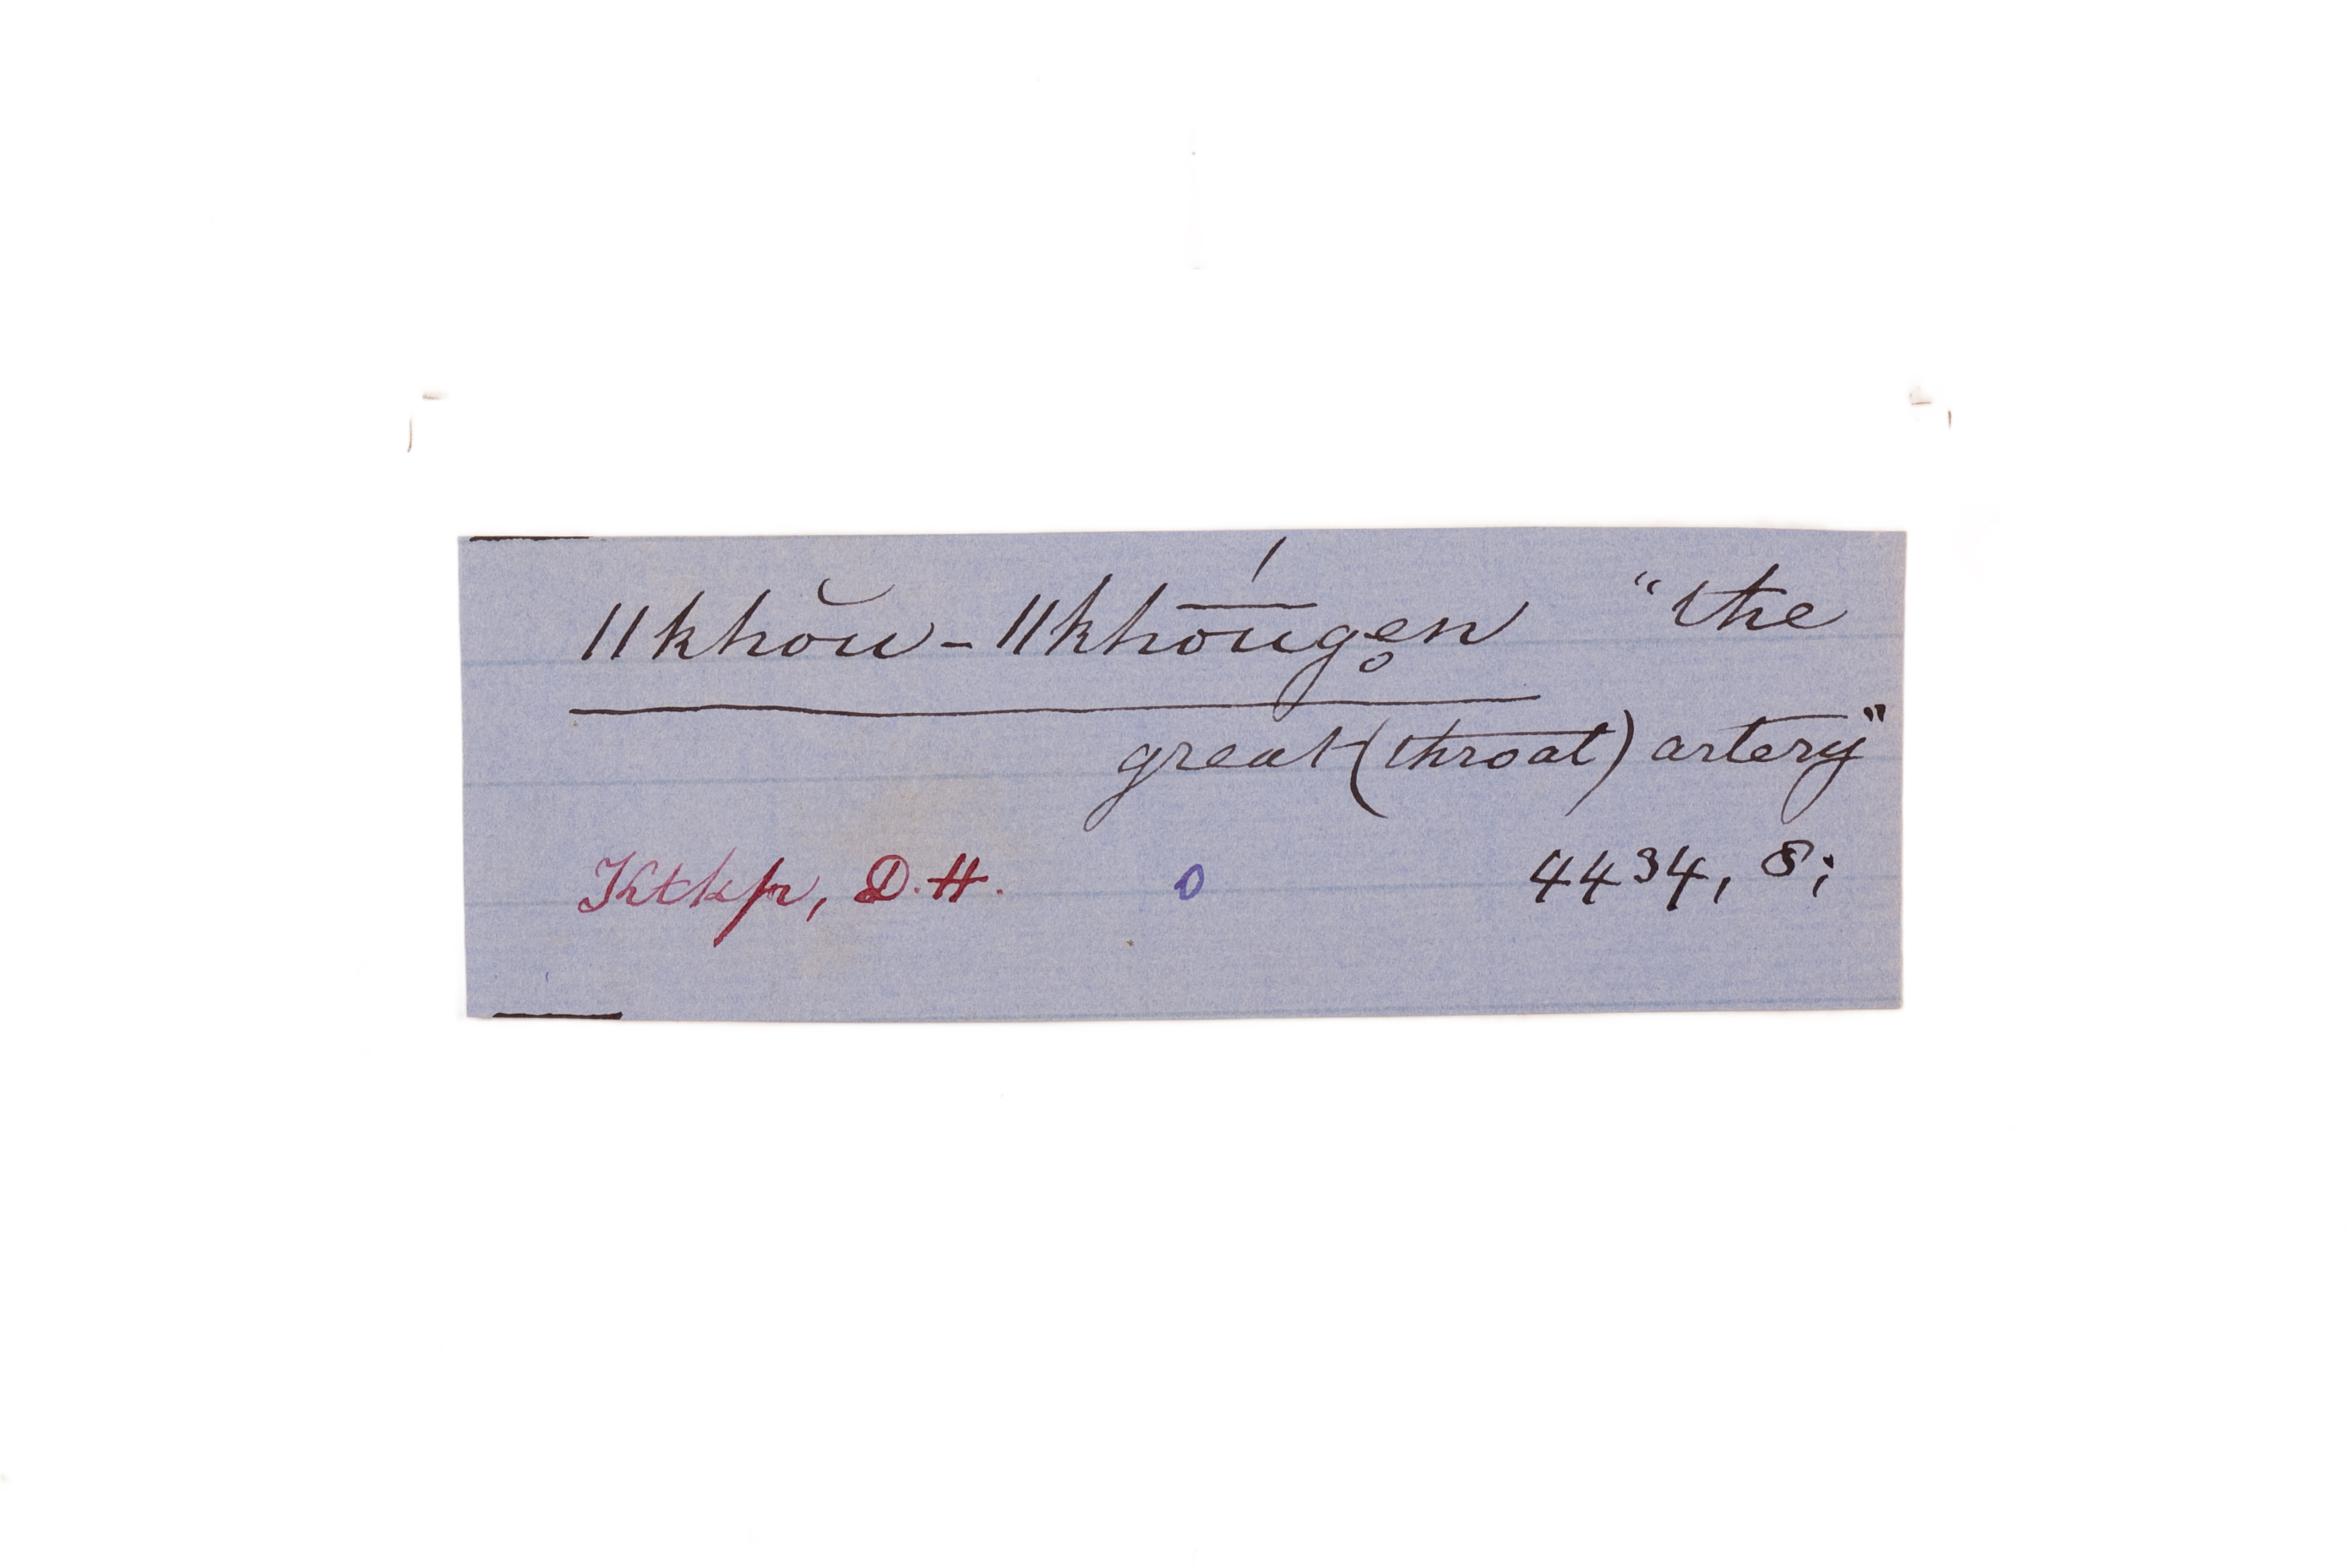 ǁkhŏu-ǁkhō̄́uge̥n "the
great (throat) artery"
Ktkp, D.H. 0 4434, 8;